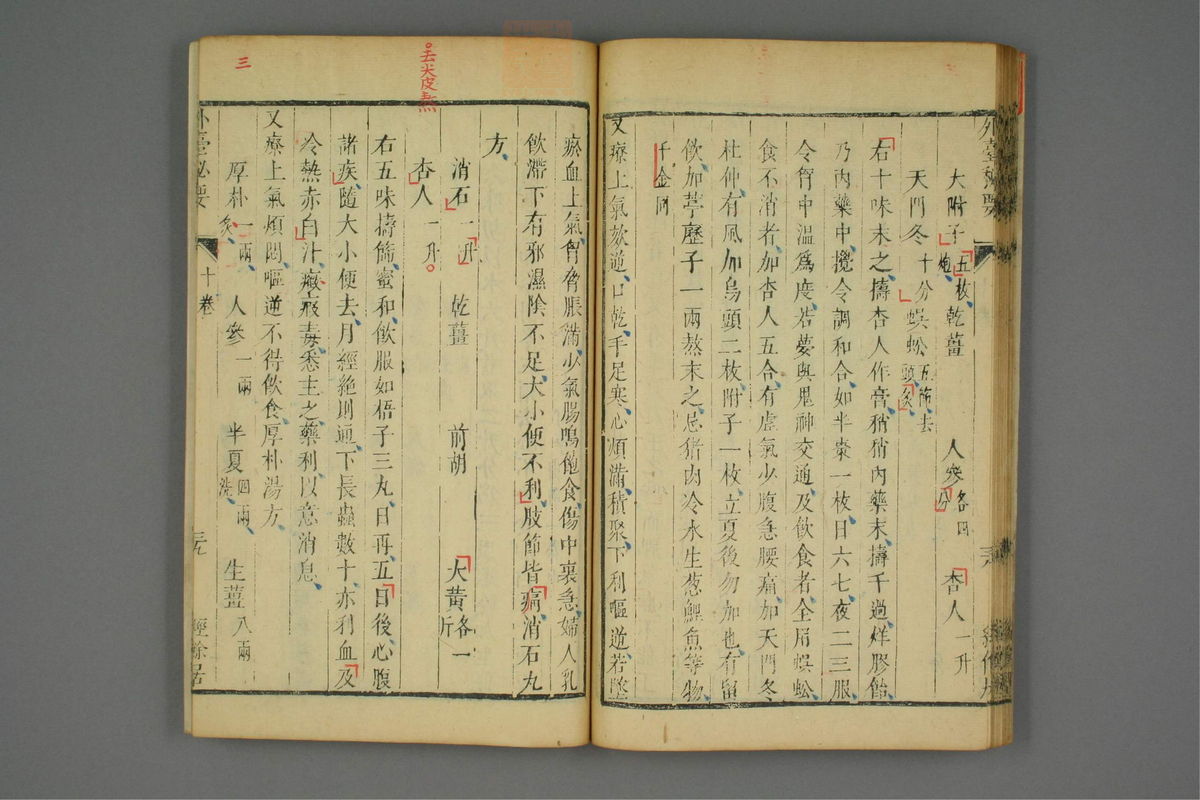 外臺秘要
大附子五枚炮 乾薑 人參各四分 杏人一升
天門冬十分 蜈蚣五節去頭炙
右十味末之擣杏人作膏稍稍內藥末擣千過烊膠飴
乃內藥中攪令調和合如半棗一枚日六七夜二三服
令胷中溫爲度若夢與鬼神交通及飲食者全用蜈蚣
食不消者加杏人五合有虛氣少腹急腰痛加天門冬
杜仲有風加烏頭二枚附子一枚立夏後勿加也有留
飲加葶藶子一兩熬末之忌猪肉冷水生葱鯉魚等物
千金同
又療上氣欬逆口乾手足寒心煩滿積聚下利嘔逆若墜
瘀血上氣胷脅脹滿少氣腸鳴飽食傷中裏急婦人乳
飲滯下有邪濕陰不足大小便不利肢節皆痛消石丸
方
消石一升 乾薑 前胡 大黃各一斤
杏人一升
去尖皮熬
右五味擣篩蜜和飲服如梧子三丸日再五日後心腹
諸疾隨大小便去月經絶則通下長蟲數十亦利血及
冷熱赤白汁癥瘕毒悉主之藥利以意消息
又療上氣煩悶嘔逆不得飲食厚朴湯方
厚朴一兩炙 人參一兩 半夏四兩洗 生薑八兩
三
外臺秘要
十卷
三五
經餘居